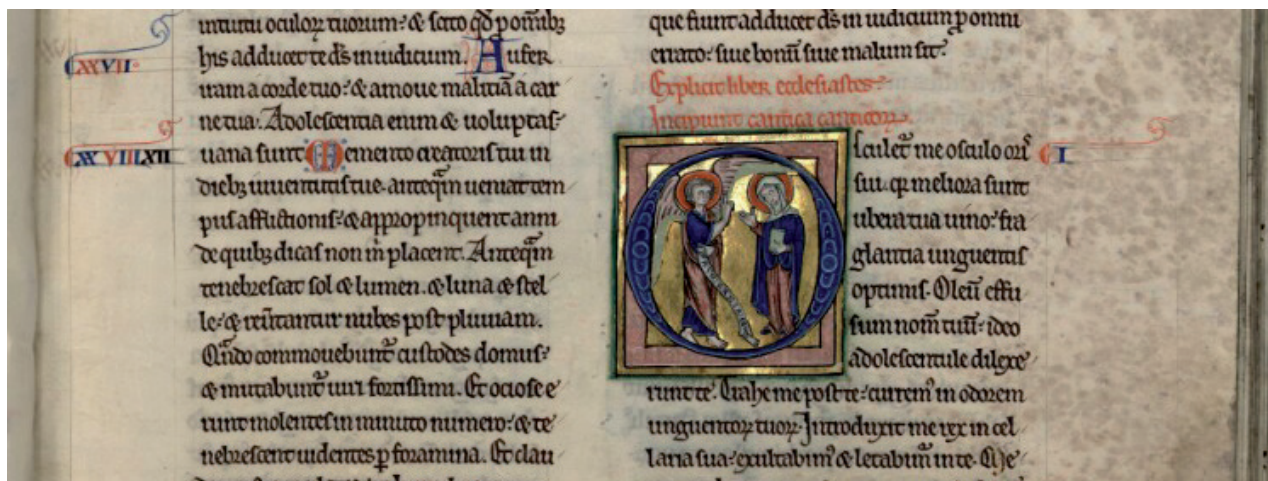 intuitu oculoꝝ tuorum: & scito qđ ꝓ om̄ibꝫ
his adducet te d̄s in iudicium. Aufer
XXVII
iram a corde tuo: & amoue malitiā a car
ne tua. Adolescentia enim & uoluptas
uana sunt Memento creatoris tui in
XXVIII XII
diebꝫ iuuentutis tue. anteq̄m ueniat tem
pus afflictionis: & appropinquent anni
de quibꝫ dicas non m̄ placent. Anteq̄m
tenebrescat sol & lumen. & luna & stel
le: & reūtantur nubes post pluuiam.
Qn̄do commouebunt᷑ custodes domus:
& mutabunt᷑ uiri fortissimi. Et ociose e
runt molentes in minuto numero: & te
nebrescent uidentes ꝑ foramina. Et clau
que fiunt adducet d̄s in iudicium ꝓ omni
errato: siue bonū siue malum sit.
Explicit liber ecclesiastes.
Incipiunt cantica canticoꝝ.
Osculet᷑ me osculo oris
I
sui. q̄ meliora sunt
ubera tua uino: fra
glantia unguentis
optimis. Oleū effu
sum nom̄ tuū: ideo
adolescentule dilexe
runt te. Trahe me post te: currem᷒ in odorem
unguentoꝝ tuoꝝ. Introduxit me rex in cel
laria sua: exultabim᷒ & letabim᷒ in te. Me